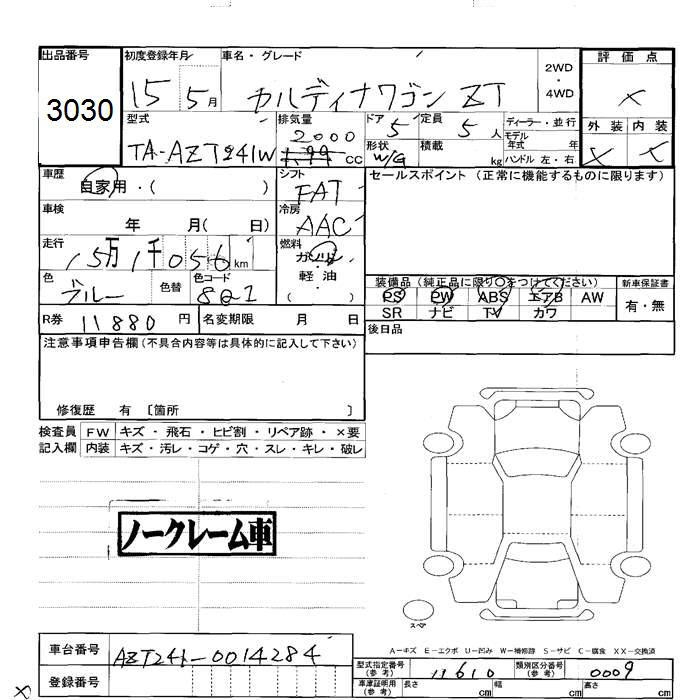 出品番号
3030
初度登録年月
15 5月
車名・グレード
カルディナワゴン ZT
2WD
・
4WD
評価点
×
外装 内装
× ×
型式
TA-AZT241W
排気量
2000
1.99 cc
ドア 5
定員 5 人
形状 W/G
積載 kg
ディーラー・並行
モデル
年式 年
ハンドル 左・右
車歴
自家用・( )
シフト
FAT
セールスポイント (正常に機能するものに限ります)
車検
年 月( 日)
冷房
AAC
走行
15万1千056km
燃料
ガソリン
軽油
( )
色
ブルー
色替
色コード
8Q1
装備品 (純正品に限り〇をつけてください)
PS PW ABS エアB AW
SR ナビ TV カワ
新車保証書
有・無
R券 11880 円
名変期限 月 日
後日品
注意事項申告欄(不具合内容等は具体的に記入して下さい)
修復歴 有 〔箇所 〕
検査員
記入欄
FW キズ・飛石・ヒビ割・リペア跡・×要
内装 キズ・汚レ・コゲ・穴・スレ・キレ・破レ
ノークレーム車
スペア
A-キズ E-エクボ U-凹み W-補修跡 S-サビ C-腐食 XX-交換済
車台番号
AZT241-0014284
登録番号
型式指定番号
(参考)
11610
類別区分番号
(参考)
0009
車庫証明用
(参考)
長さ cm
幅 cm
高さ cm